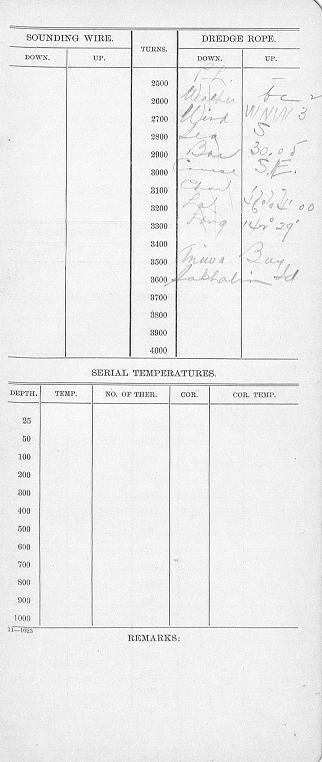 SOUNDING WIRE. TURNS. DREDGE ROPE.
DOWN. UP. DOWN. UP.
2500
2600 Weather bc 2
2700 Wind WNW 3
2800 Sea S
2900 Bar 30.05
3000 Course S.E.
3100 Char
3200 Lat 00
3300 Long 142° 29'
3400
3500 Aniwa Bay
3600 Sakhalin Id
3700
3800
3900
4000
SERIAL TEMPERATURES.
DEPTH. TEMP. NO. OF THER. COR. COR. TEMP.
25
50
100
200
300
400
500
600
700
800
900
1000
11—1025
REMARKS: